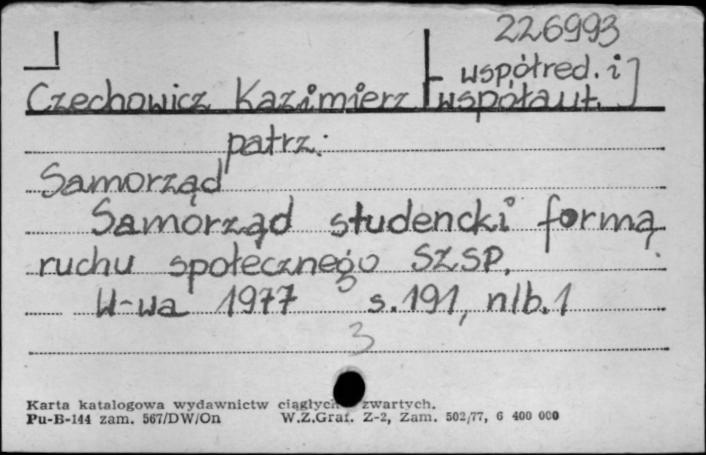 226993
Czechowicz Kazimierz [współred. i
współaut.]
patrz:
Samorząd
Samorząd studencki formą
ruchu społecznego SZSP.
W-wa 1977 s. 191, nlb. 1
3
Karta katalogowa wydawnictw zwartych.
Pu-B-144 zam. 567/DW/On W.Z.Graf. Z-2, Zam. 502/77, 6 400 000